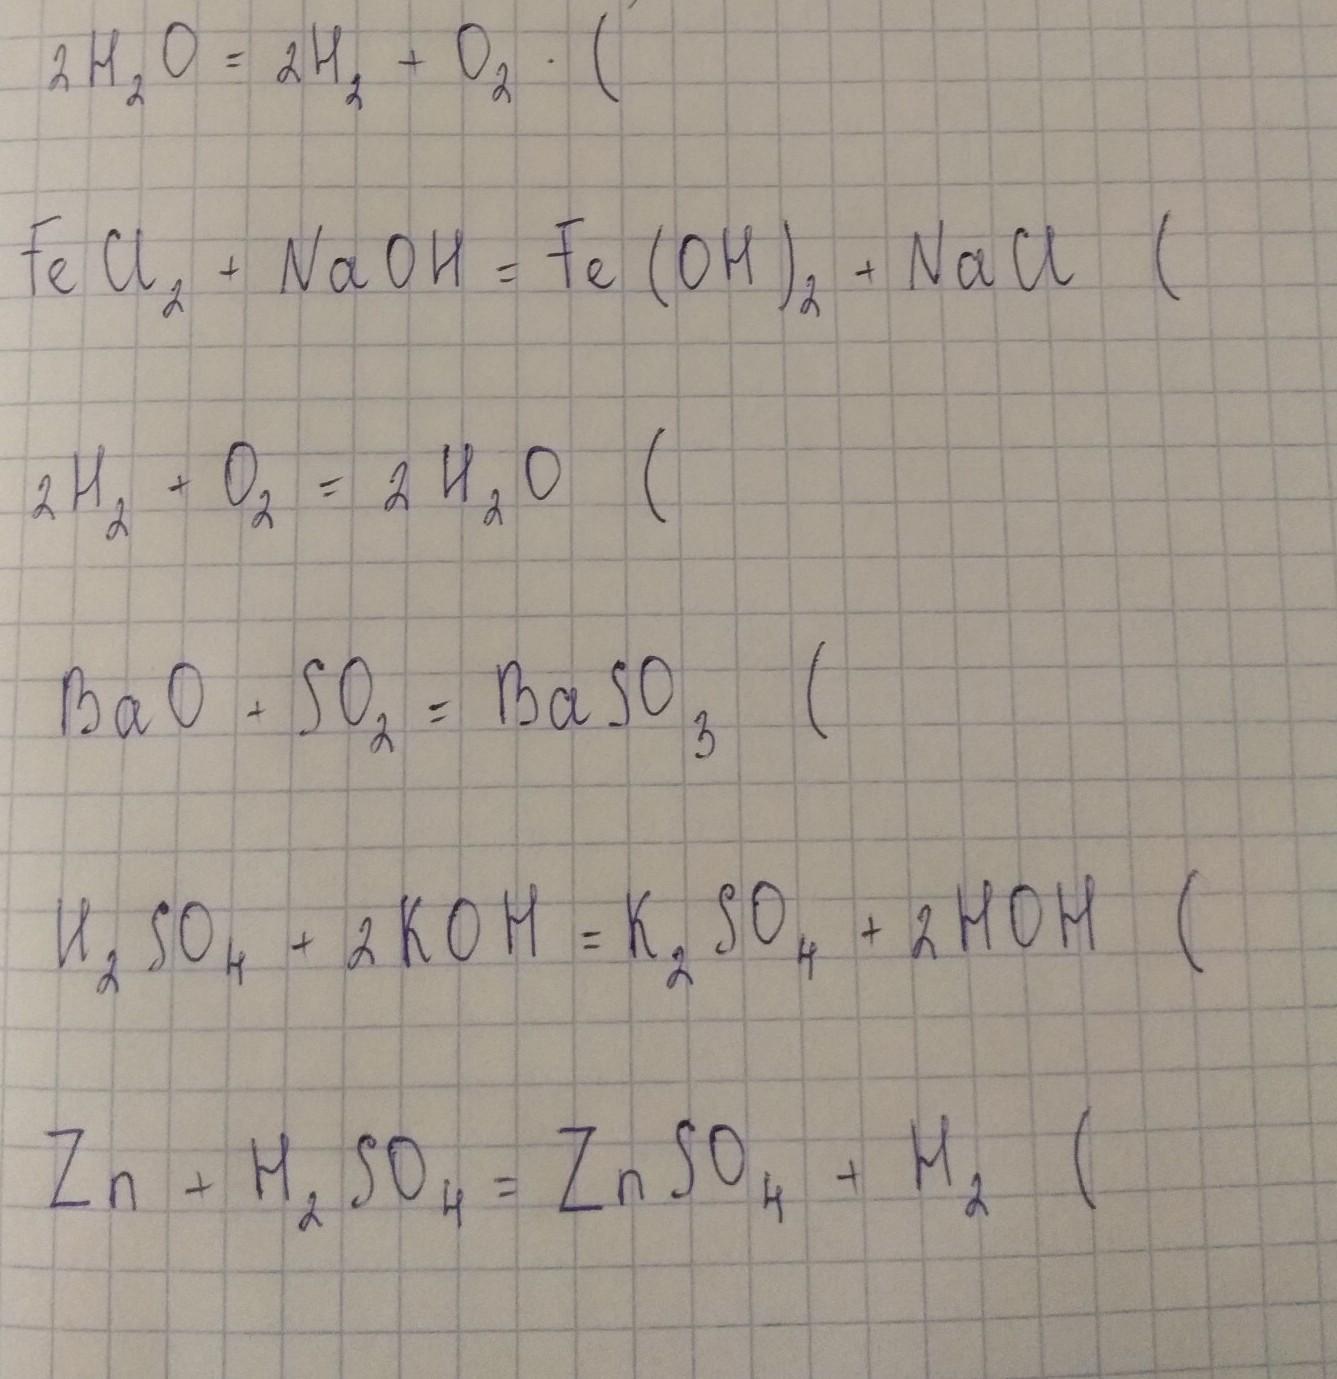 2H₂O = 2H₂ + O₂ . (
FeCl₂ + NaOH = Fe(OH)₂ + NaCl (
2H₂ + O₂ = 2H₂O (
BaO + SO₂ = BaSO₃ (
H₂SO₄ + 2KOH = K₂SO₄ + 2HOH (
Zn + H₂SO₄ = ZnSO₄ + H₂ (